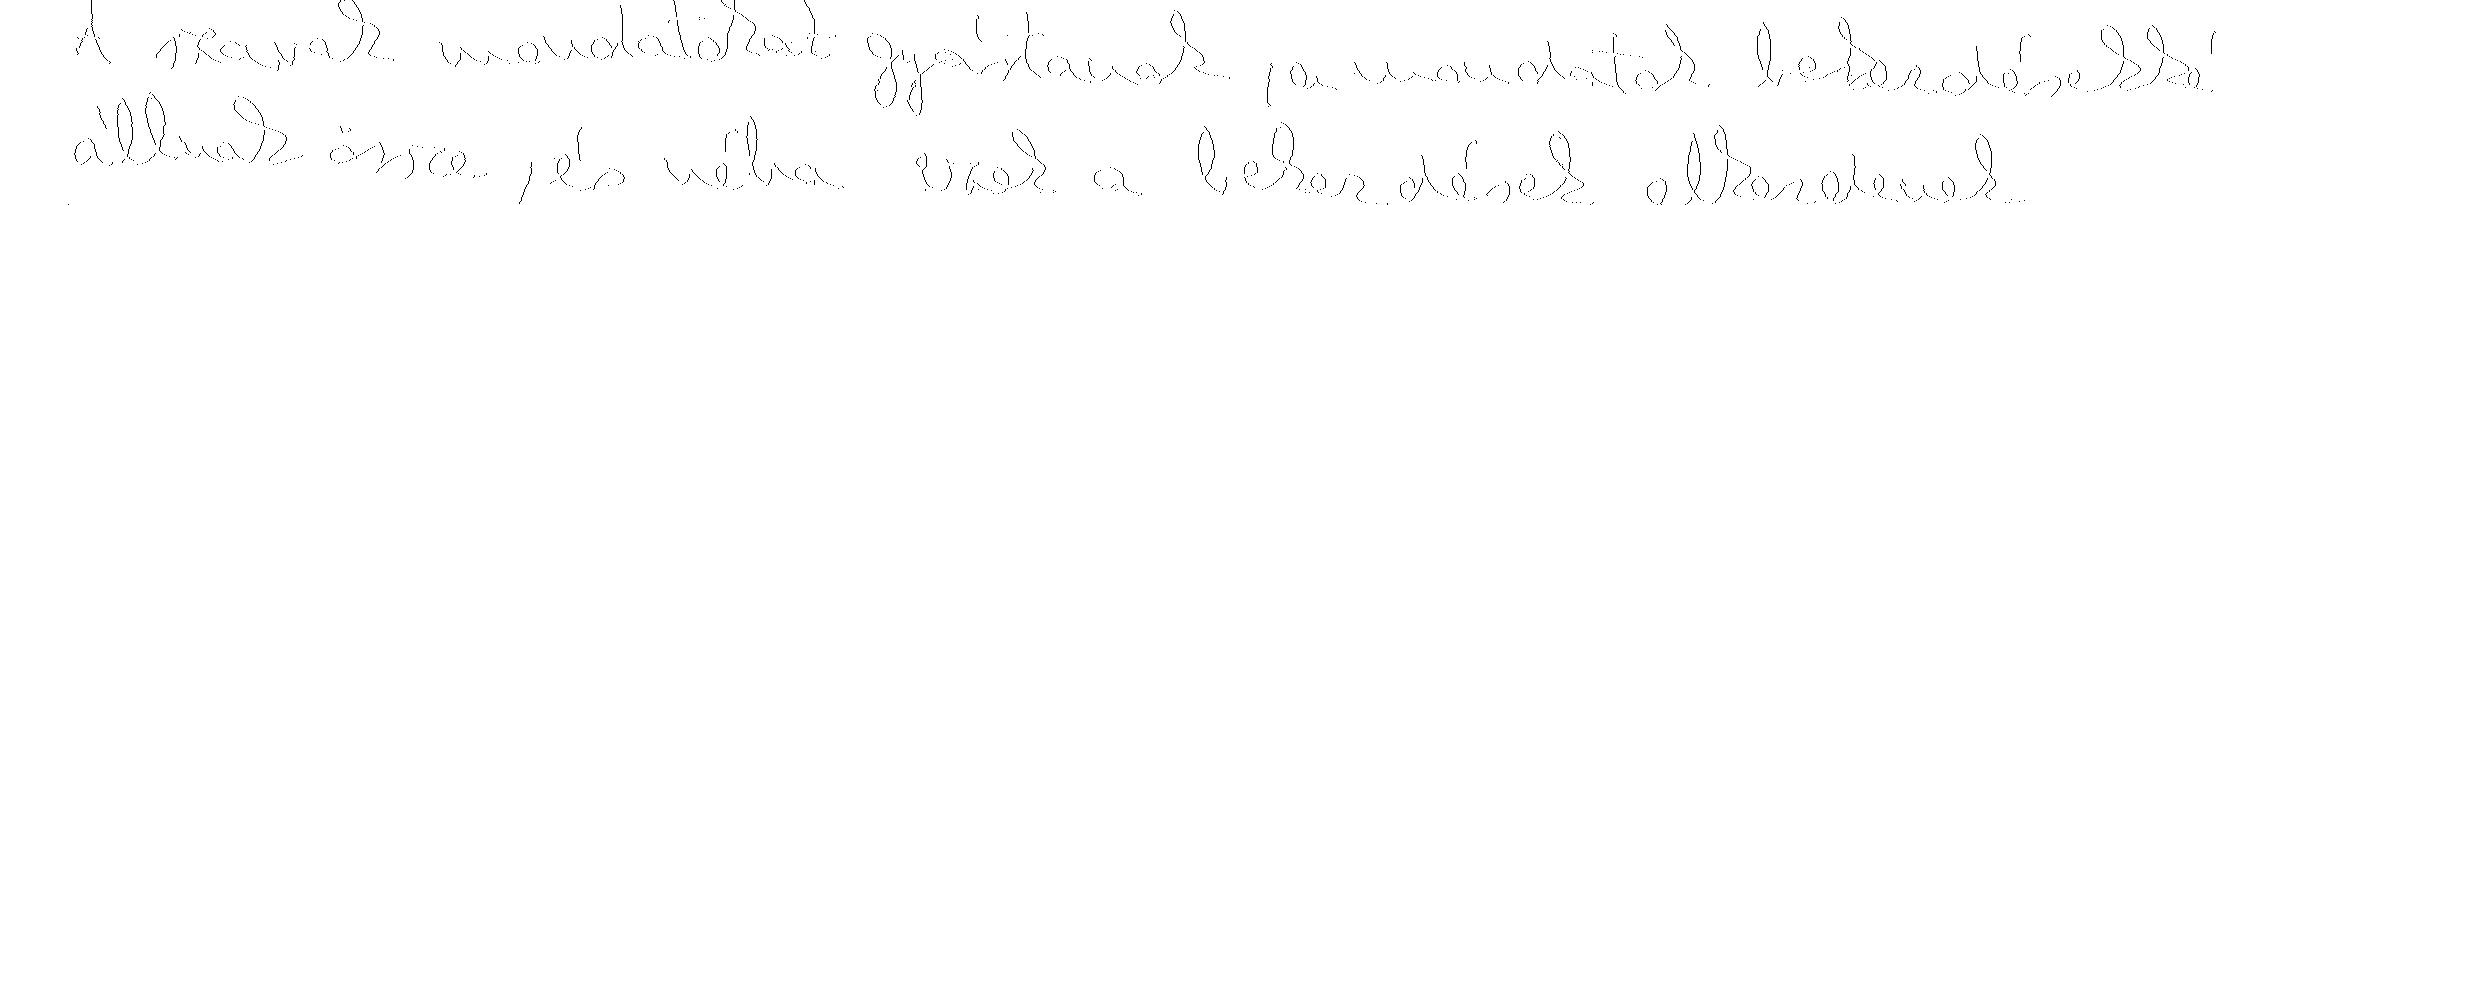 A szavak mondatokat gyártanak, a mondatok bekezdésekké
állnak össze, és néha ezek a bekezdések elkezdenek